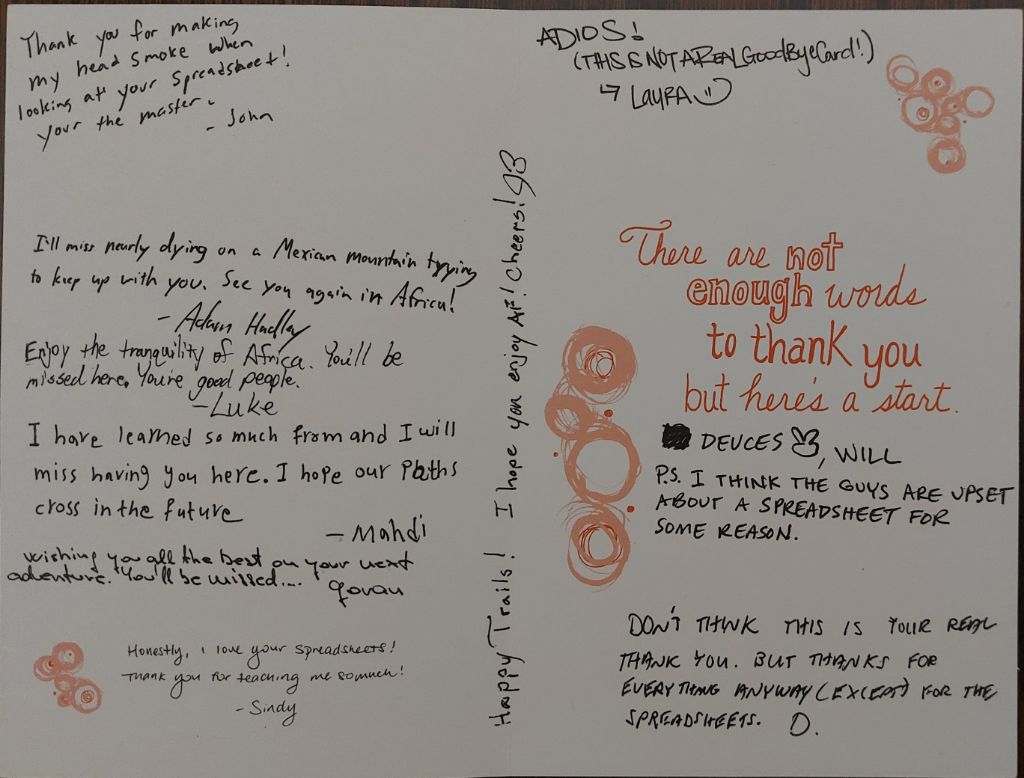 Thank you for making
my head smoke when
looking at your spreadsheet!
your the master.
- John
I'll miss nearly dying on a Mexican mountain trying
to keep up with you. See you again in Africa!
- Adam Hadley
Enjoy the tranquility of Africa. You'll be
missed here. You're good people.
- Luke
I have learned so much from and I will
miss having you here. I hope our paths
cross in the future
- Mahdi
wishing you all the best on your next
adventure. You'll be missed....
Honestly, i love your spreadsheets!
Thank you for teaching me so much!
- Sindy
Happy Trails! I hope you enjoy AF! Cheers!
ADIOS!
(THIS IS NOT A REAL GoodByeCard!)
↳ LAURA
There are not
enough words
to thank you
but here's a start.
DEUCES, WILL
P.S. I THINK THE GUYS ARE UPSET
ABOUT A SPREADSHEET FOR
SOME REASON.
DON'T THINK THIS IS YOUR REAL
THANK YOU. BUT THANKS FOR
EVERYTHING ANYWAY (EXCEPT) FOR THE
SPREADSHEETS. D.